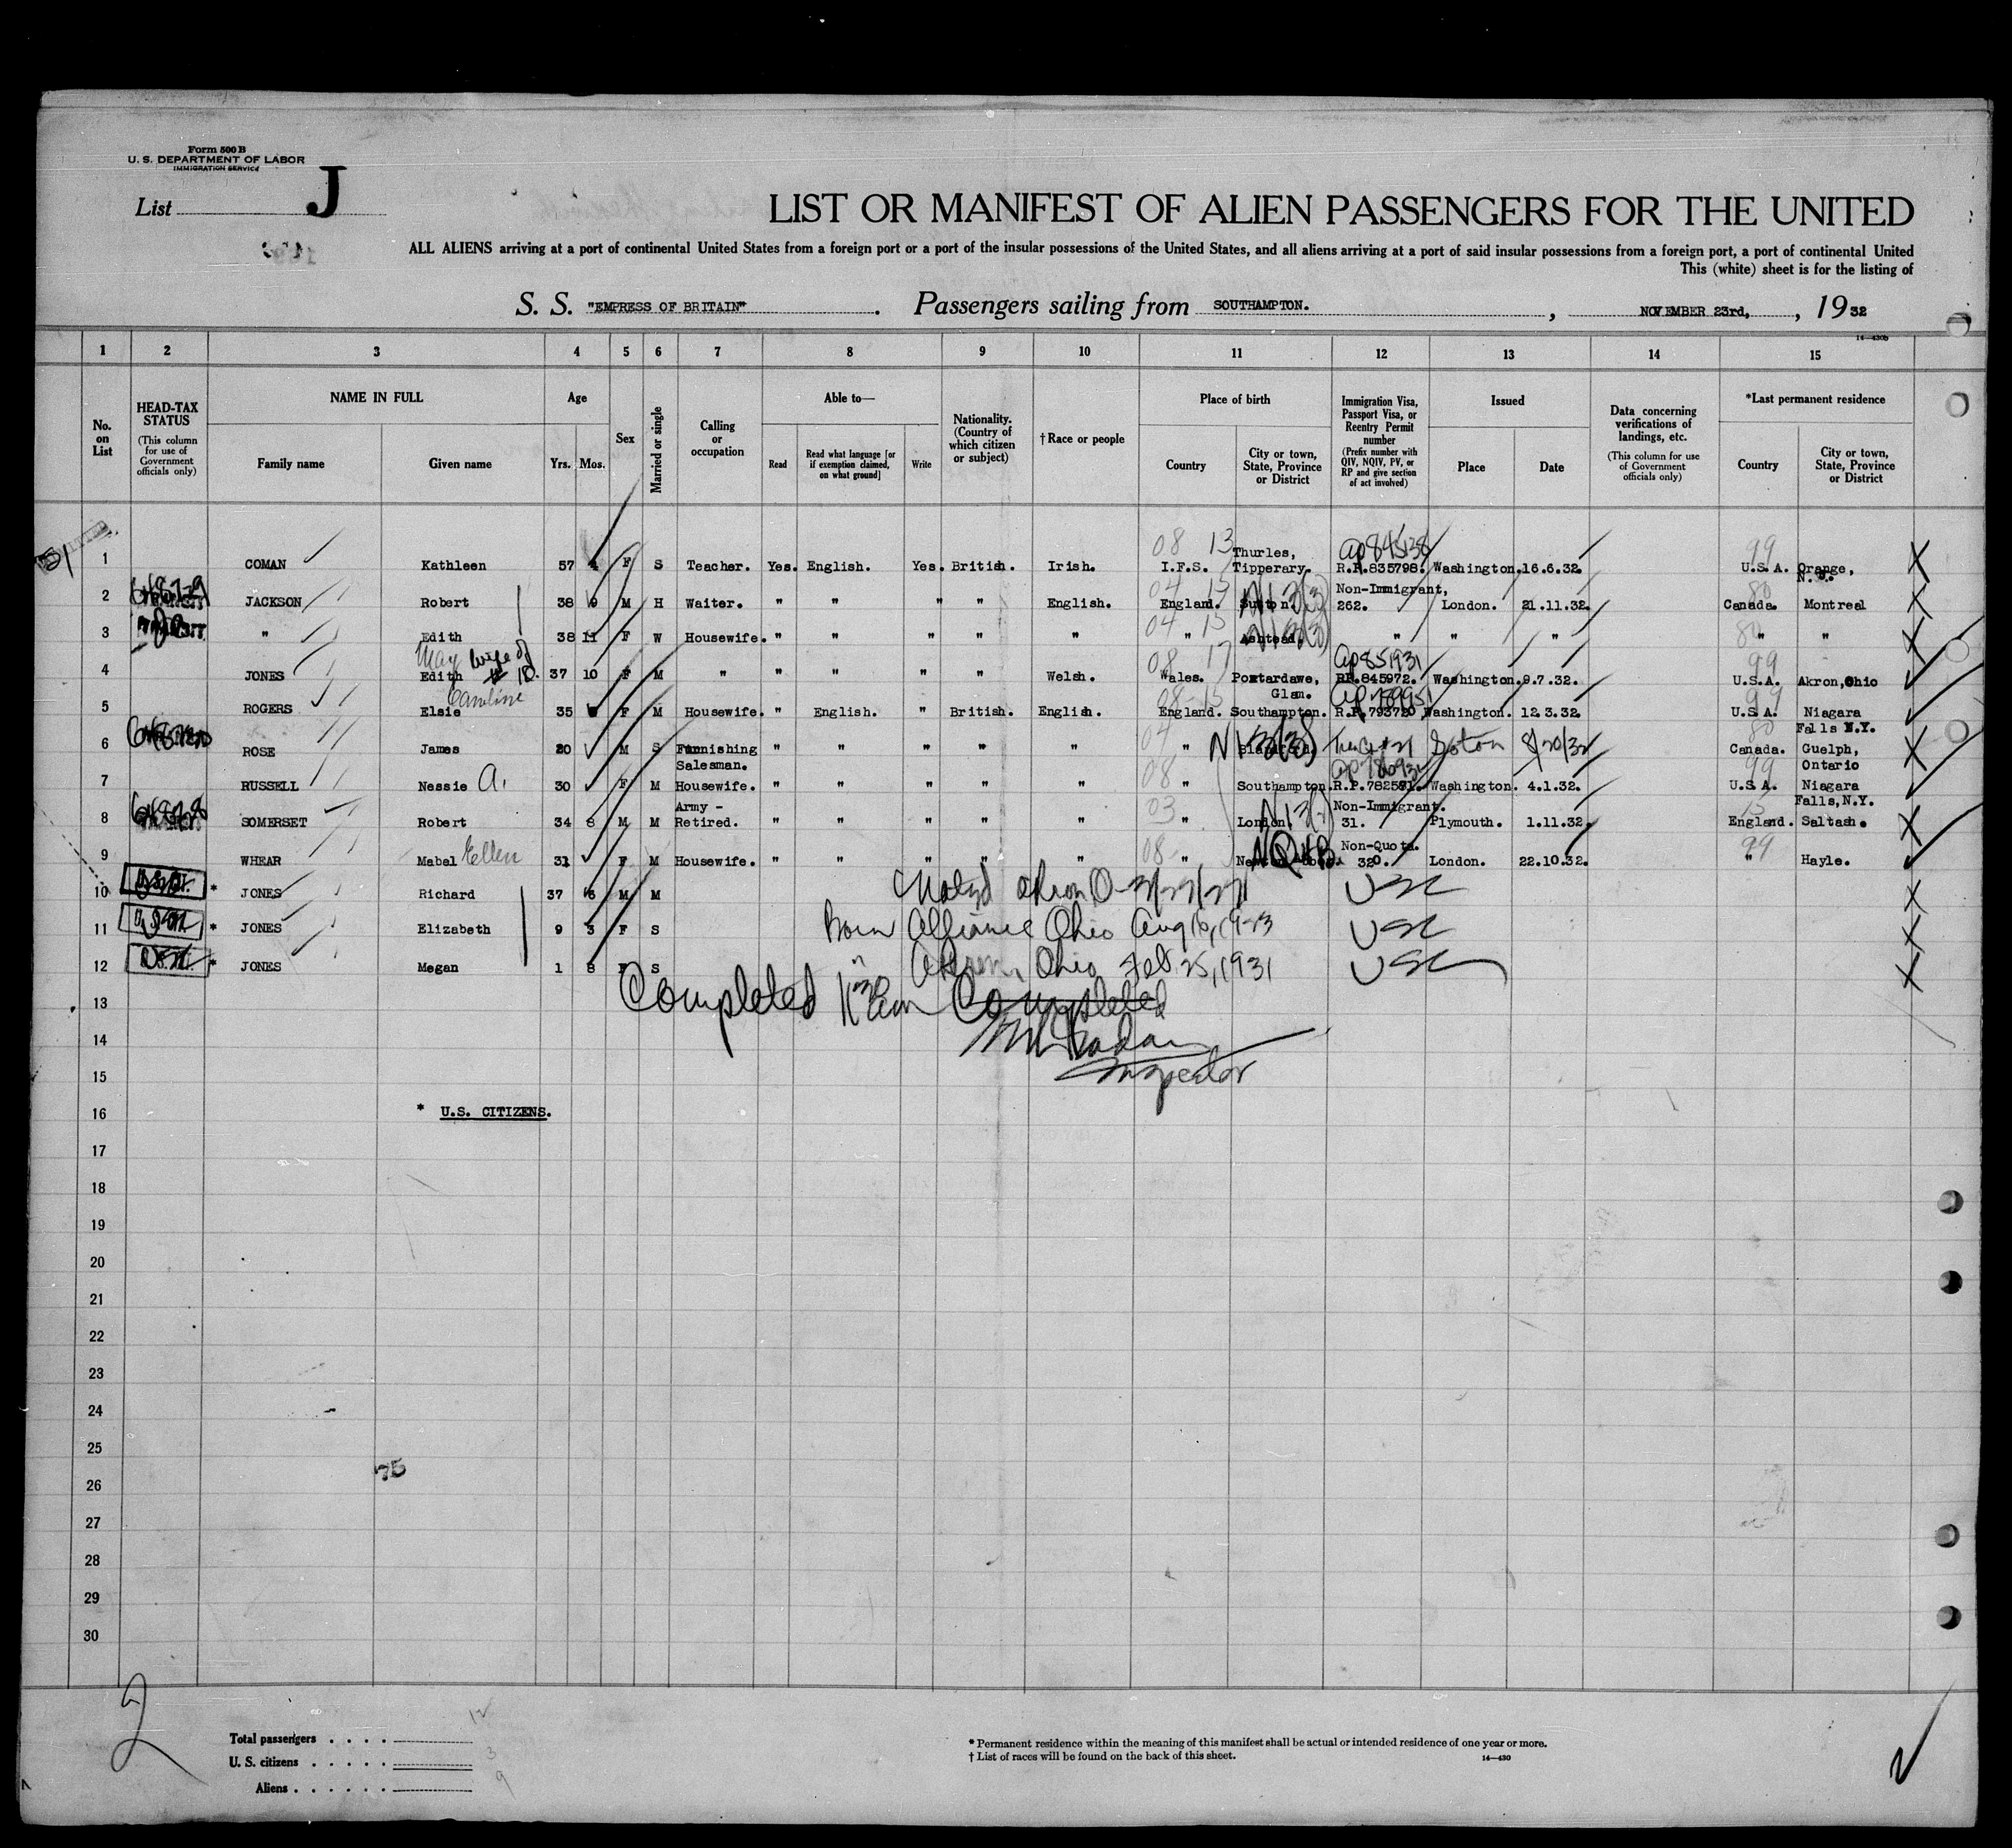 Form 500 B
U. S. DEPARTMENT OF LABOR
IMMIGRATION SERVICE
List J
LIST OR MANIFEST OF ALIEN PASSENGERS FOR THE UNITED
ALL ALIENS arriving at a port of continental United States from a foreign port or a port of the insular possessions of the United States, and all aliens arriving at a port of said insular possessions from a foreign port, a port of continental United
This (white) sheet is for the listing of
S. S. "EMPRESS OF BRITAIN" . Passengers sailing from SOUTHAMPTON. , NOVEMBER 23rd, , 19 32
14—430b
1 2 3 4 5 6 7 8 9 10 11 12 13 14 15
No. on List
HEAD-TAX STATUS (This column for use of Government officials only)
NAME IN FULL
Family name Given name
Age
Yrs. Mos.
Sex
Married or single
Calling or occupation
Able to—
Read Read what language [or if exemption claimed, on what ground] Write
Nationality. (Country of which citizen or subject)
† Race or people
Place of birth
Country City or town, State, Province or District
Immigration Visa, Passport Visa, or Reentry Permit number (Prefix number with QIV, NQIV, PV, or RP and give section of act involved)
Issued
Place Date
Data concerning verifications of landings, etc. (This column for use of Government officials only)
*Last permanent residence
Country City or town, State, Province or District
08 13 99
1 COMAN Kathleen 57 F S Teacher. Yes. English. Yes. British. Irish. I.F.S. Thurles, Tipperary. R.P.835798. Washington. 16.6.32. U.S.A. Orange, N.J.
04 15 80
2 JACKSON Robert 38 9 M H Waiter. " " " " English. England. Non-Immigrant, 262. London. 21.11.32. Canada. Montreal
04 15 80
3 " Edith 38 11 F W Housewife. " " " " " " Ashtead. " " " " "
May wife of # 10.
08 17 Ap851931 99
4 JONES Edith 37 10 F M " " " " " Welsh. Wales. Pontardawe, Glam. RP.845972. Washington. 9.7.32. U.S.A. Akron, Ohio
Caroline
08-15 99
5 ROGERS Elsie 35 F M Housewife. " English. " British. English. England. Southampton. R.P.793720 Washington. 12.3.32. U.S.A. Niagara Falls N.Y.
04 80
6 ROSE James 20 M S Furnishing Salesman. " " " " " " Soton 8/20/32 Canada. Guelph, Ontario
08 99
7 RUSSELL Nessie A. 30 F M Housewife. " " " " " " Southampton. R.P.782581. Washington. 4.1.32. U.S.A. Niagara Falls, N.Y.
03
8 SOMERSET Robert 34 8 M M Army - Retired. " " " " " " London. Non-Immigrant. 31. Plymouth. 1.11.32. England. Saltash.
08- 99
9 WHEAR Mabel Ellen 31 F M Housewife. " " " " " " Non-Quota. 320. London. 22.10.32. " Hayle.
10 * JONES Richard 37 6 M M USC
11 * JONES Elizabeth 9 3 F S Born Alliance Ohio Aug 16, 1923 USC
12 * JONES Megan 1 8 F S " Akron, Ohio Feb 25, 1931 USC
13 Completed Completed
14
15 Inspector
16 * U.S. CITIZENS.
17
18
19
20
21
22
23
24
25
75
26
27
28
29
30
2
Total passengers . . . . 12
U. S. citizens . . . . . 3
Aliens . . . . . . 9
* Permanent residence within the meaning of this manifest shall be actual or intended residence of one year or more.
† List of races will be found on the back of this sheet.
14—430